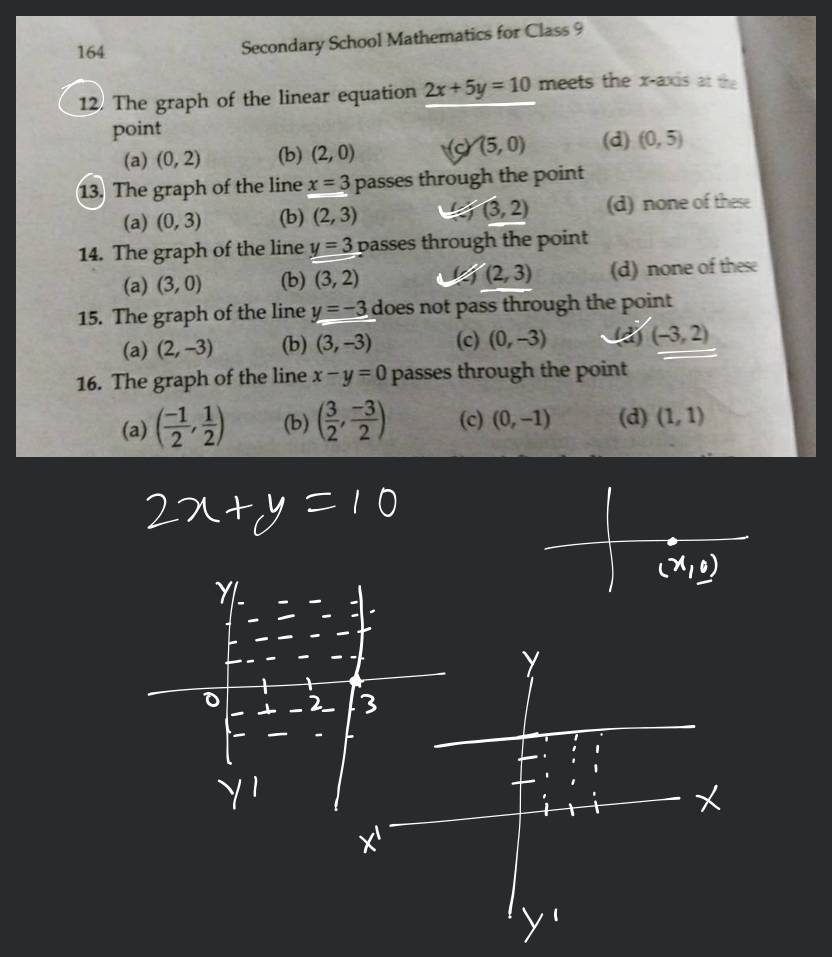 164 Secondary School Mathematics for Class 9
12. The graph of the linear equation 2x + 5y = 10 meets the x-axis at the
point
(a) (0, 2) (b) (2, 0) (c) (5, 0) (d) (0, 5)
13. The graph of the line x = 3 passes through the point
(a) (0, 3) (b) (2, 3) (c) (3, 2) (d) none of these
14. The graph of the line y = 3 passes through the point
(a) (3, 0) (b) (3, 2) (c) (2, 3) (d) none of these
15. The graph of the line y = -3 does not pass through the point
(a) (2, -3) (b) (3, -3) (c) (0, -3) (d) (-3, 2)
16. The graph of the line x - y = 0 passes through the point
(a) (-1/2, 1/2) (b) (3/2, -3/2) (c) (0, -1) (d) (1, 1)
2x+y=10
(x,0)
Y
0 2 3
Y'
Y
X' X
Y'